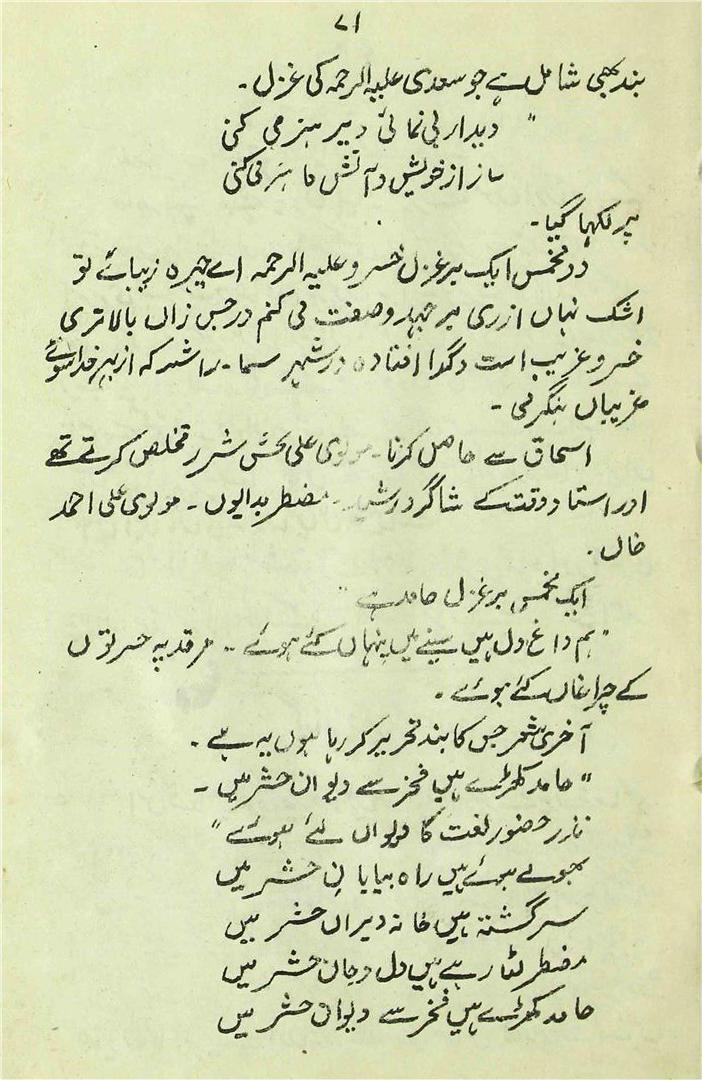 ۷۱
بند بھی شامل ہے جو سعدی علیہ الرحمہ کی غزل ۔
" دیدار بی نمائی و پرہیز می کنی
ساز از خویش و آتش ما ہز می کنی
پر لکہا گیا ۔
دو مخمس ایک بر غزل خسرو علیہ الرحمہ اے چہرہ زیبائے تو
اشک نہاں ازری ہر چہد وصفت می کنم در حسن زاں بالاتری
خسرو غریب است و گدا افتادہ در شہر سما ۔ باشد کہ از بہر خدا سوئے
غریباں بنگری ۔
اسحاق سے حاصل کرنا ۔ مولوی علی بخش شرر تخلص کرتے تھے
اور استاد وقت کے شاگرد رشید ۔ مضطر بدایوں ۔ مولوی علی احمد
خاں ۔
ایک مخمس بر غزل حامد ہے "
" ہم داغ دل ہیں سینے میں پنہاں کئے ہوئے ۔ مرقد پہ حسرتوں
کے چراغاں کئے ہوئے ۔
آخری شعر جس کا بند تحریر کر رہا ہوں یہ ہے ۔
" حامد کھڑے ہیں فخر سے دیوان حشر میں ۔
نذر حضور نعت کا دیواں لئے ہوئے "
بھولے ہوئے ہیں راہ بیابان حشر میں
سرگشتہ ہیں خانہ ویراں حشر میں
مضطر لٹا رہے ہیں دل و جان حشر میں
حامد کھڑے ہیں فخر سے دیوان حشر میں